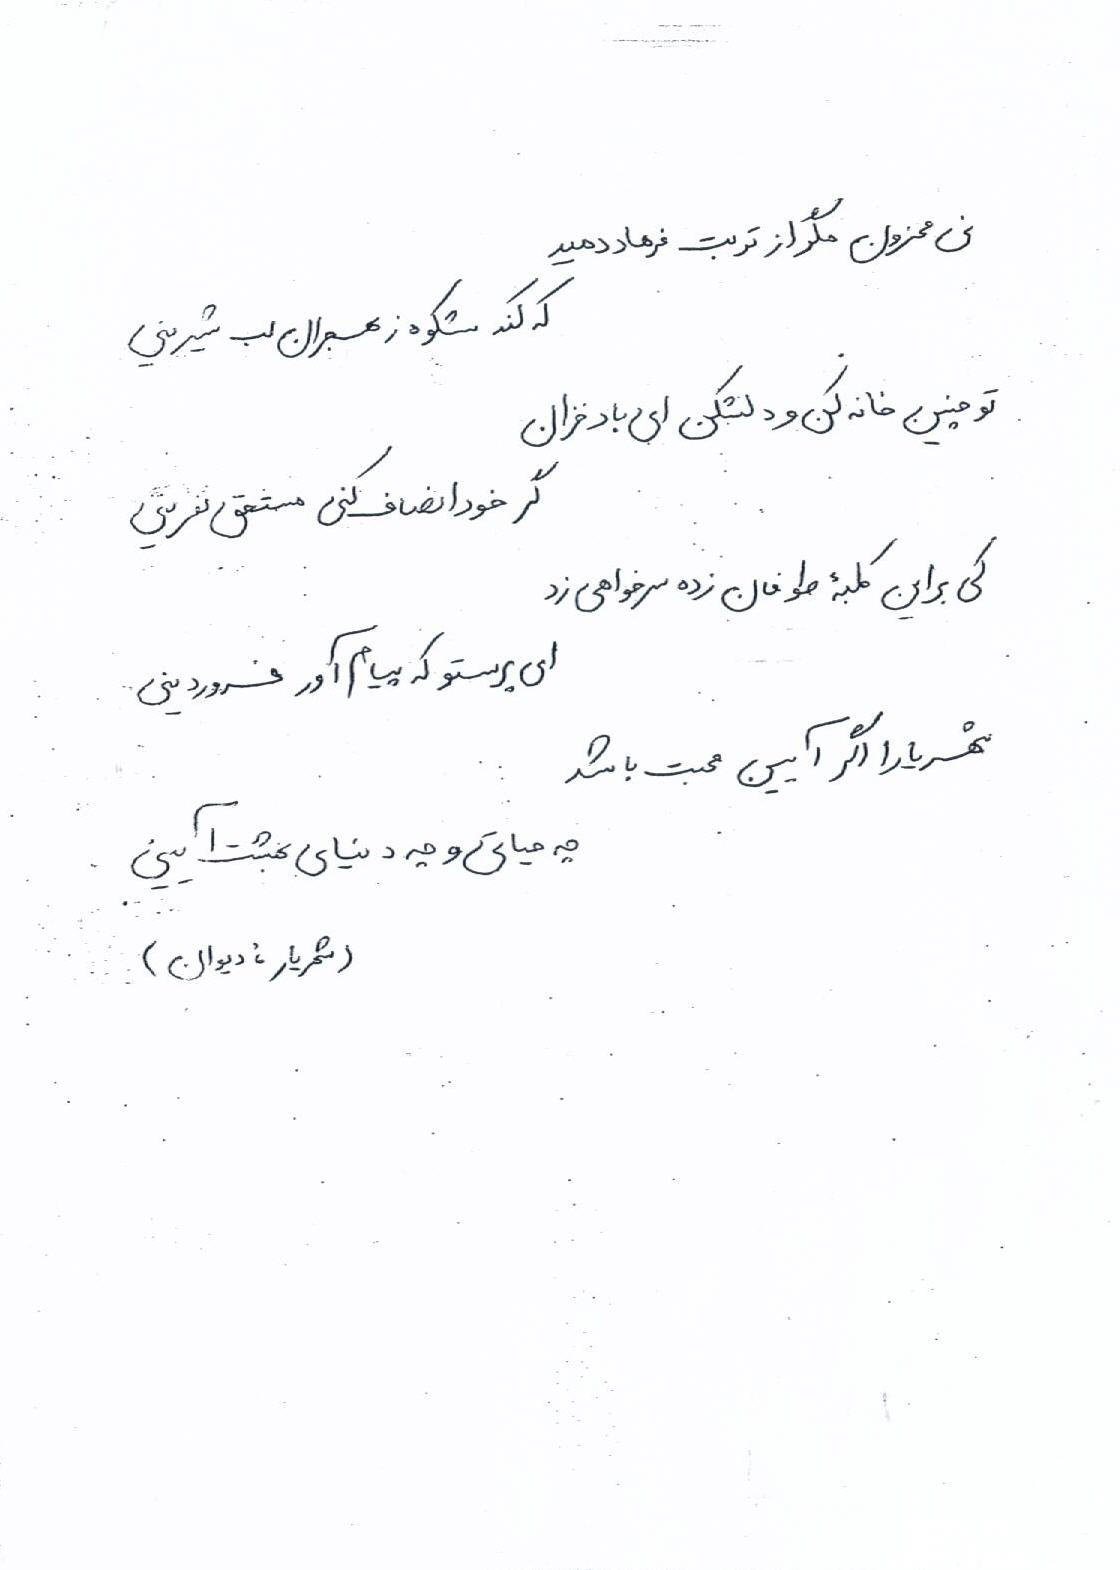 نی محزون مگر از تربت فرهاد دمید
که کند شکوه ز هجران لب شیرینی
تو چنین خانه کن و دلشکن ای باد خزان
گر خود انصاف کنی مستحق نفرینی
کی بر این کلبهٔ طوفان زده سر خواهی زد
ای پرستو که پیام آور فروردینی
شهریارا اگر آیین محبت باشد
چه حیاتی و چه دنیای بهشت آیینی
(شهریار، دیوان)